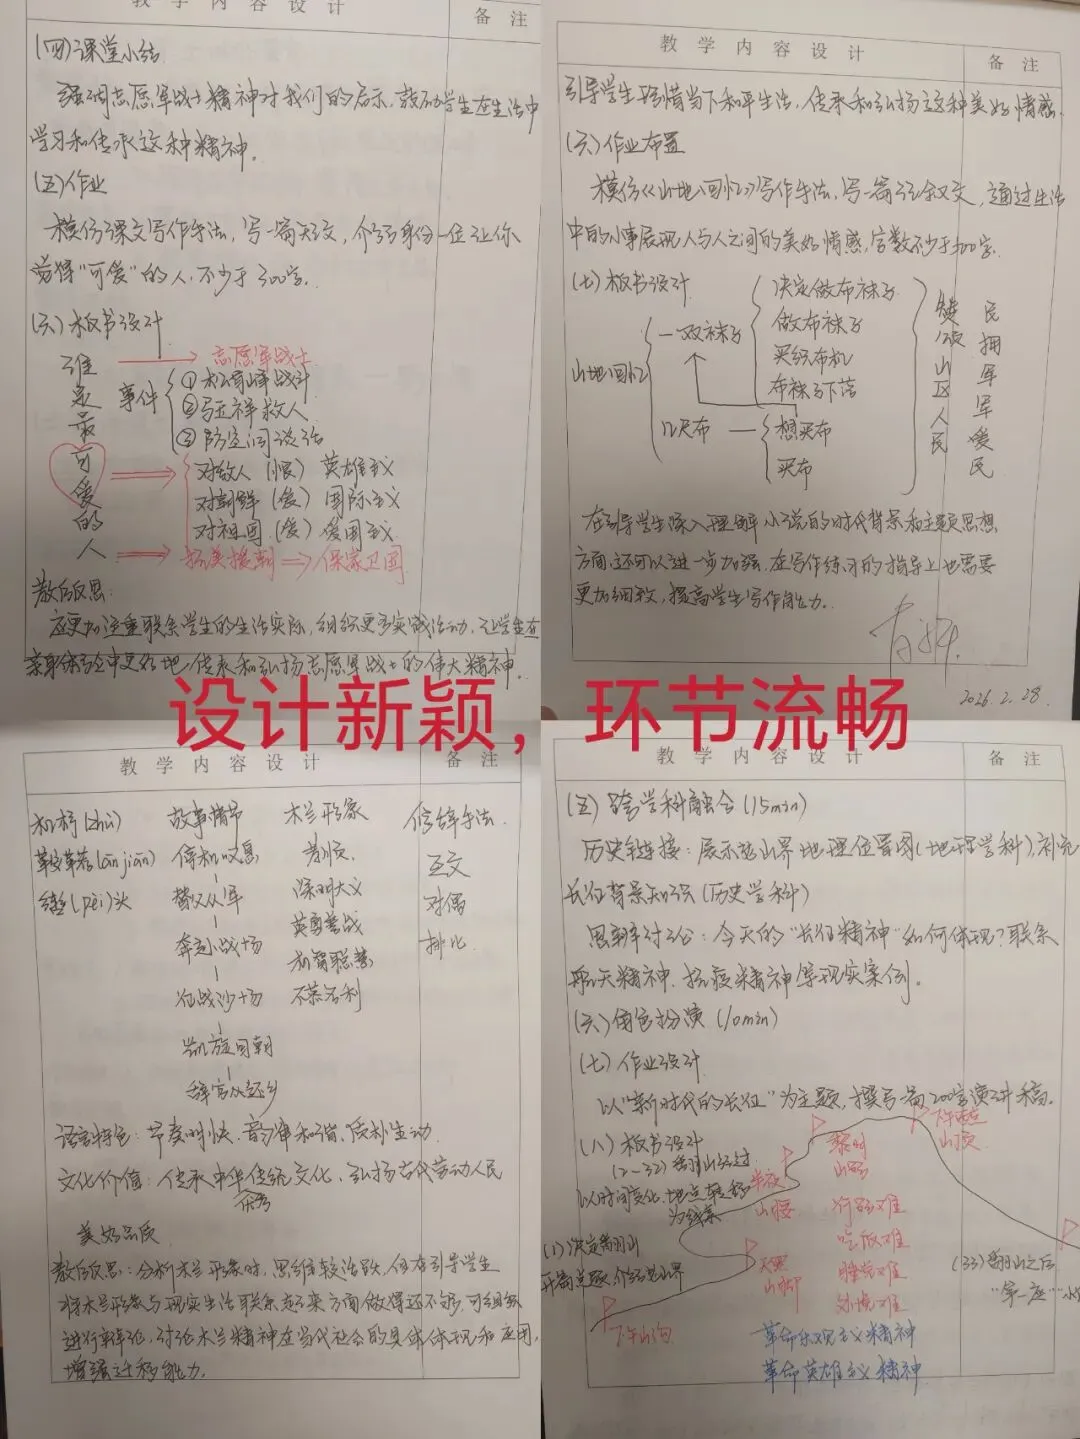 教学内容设计
备注
(四)课堂小结
强调志愿军战士精神对我们的启示,鼓励学生在生活中
学习和传承这种精神。
(五)作业
模仿课文写作手法,写一篇短文,介绍身份一位让你
觉得“可爱”的人,不少于300字.
(六)板书设计
谁是最可爱的人
志愿军战士
事件
①松骨峰战斗
②马玉祥救人
③防空洞谈话
对敌人(恨) 英雄主义
对朝鲜(爱) 国际主义
对祖国(爱) 爱国主义
抗美援朝⇒保家卫国
教后反思:
应更加注重联系学生的生活实际,组织更多实践活动,让学生在
亲身体验中更好地传承和弘扬志愿军战士的伟大精神。
教学内容设计
备注
引导学生珍惜当下和平生活,传承和弘扬这种美好情感.
(六)作业布置
模仿《山地回忆》写作手法,写一篇记叙文,通过生活
中的小事展现人与人之间的美好情感,字数不少于300字.
(七)板书设计
山地回忆
一双袜子
决定做布袜子
做布袜子
买织布机
布袜子下落
几尺布
想买布
买布
赞颂山区人民
民拥军军爱民
在引导学生深入理解小说的时代背景和主题思想
方面,还可以进一步加强.在写作练习的指导上也需要
更加细致,提高学生写作能力.
2026.2.28
设计新颖,环节流畅
教学内容设计
备注
机杼(zhù) 故事情节 木兰形象 修辞手法
鞍鞯(ān jiān) 停机叹息 孝顺 互文
辔(pèi)头 替父从军 深明大义 对偶
英勇善战
奔赴战场 机智聪慧 排比
征战沙场 不慕名利
凯旋回朝
辞官还乡
语言特色:节奏明快、音韵和谐、质朴生动
文化价值:传承中华传统文化、弘扬古代劳动人民
优秀
美好品质
教后反思:分析木兰形象时,思维较活跃,但在引导学生
将木兰形象与现实生活联系起来方面做得还不够,可组织
进行辩论,讨论木兰精神在当代社会的具体体现和应用,
增强迁移能力.
教学内容设计
备注
(五)跨学科融合(15min)
历史链接:展示老山界地理位置图(地理学科),补充
长征背景知识(历史学科)
思辨讨论:今天的“长征精神”如何体现?联系
航天精神、抗疫精神等现实案例。
(六)角色扮演(10min)
(七)作业设计
以“新时代的长征”为主题,撰写一篇200字演讲稿。
(八)板书设计
(2-32)翻山经过
以时间变化、地点转移
为线索
(1)决定翻山
开篇点题,介绍老山界
下午山沟
天黑
山脚
半夜
山腰
黎明
山路
下午
山顶
行路难
吃饭难
睡觉难
处境难
(33)翻山之后
“第一座”
革命乐观主义精神
革命英雄主义精神